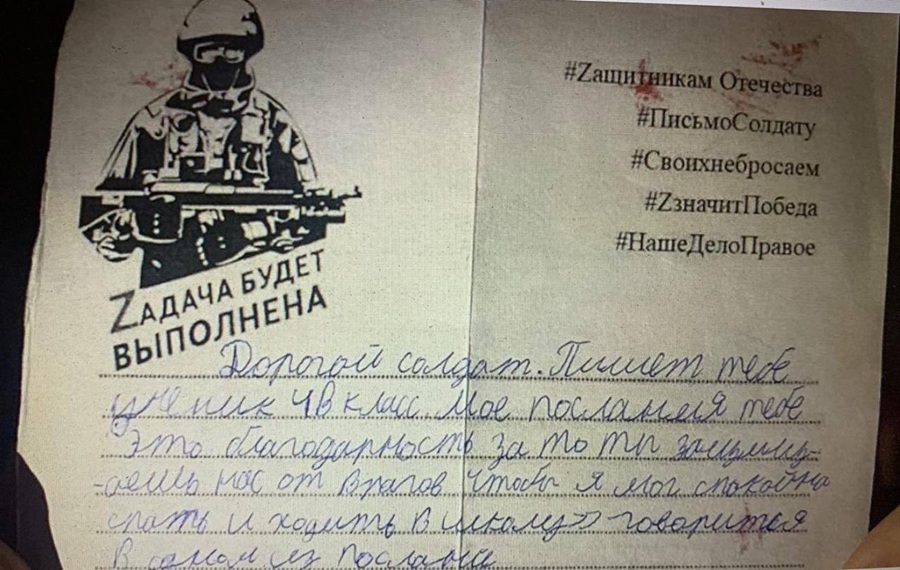 #Zащитникам Отечества
#ПисьмоСолдату
#Своихнебросаем
#ZзначитПобеда
#НашеДелоПравое
Zадача будет
выполнена
Дорогой солдат. Пишет тебе
ученик 4в класс. Мое послания тебе
это благодарность за то ты защищ-
-аешь нас от врагов чтобы я мог спокойна
спать и ходить в школу» говорится
в одном из послани